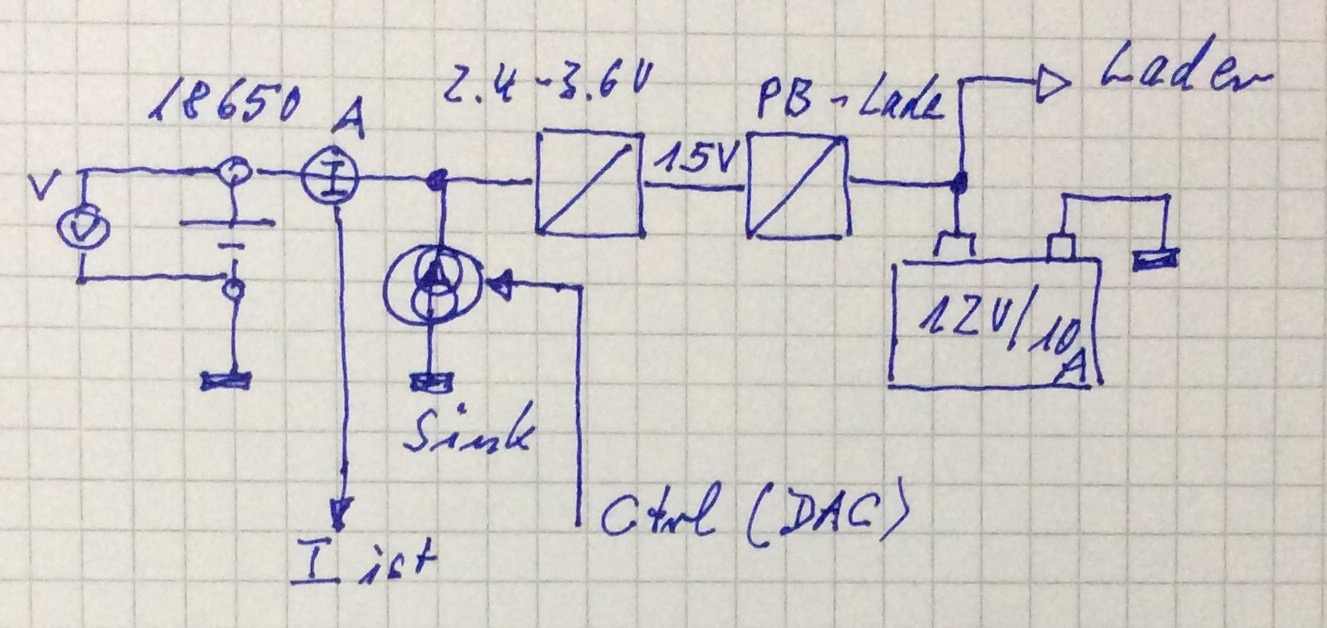 18650
A
2.4-3.6V
PB-Lade
Laden
V
V
I
15V
12V/10
A
Sink
Ctrl (DAC)
I ist